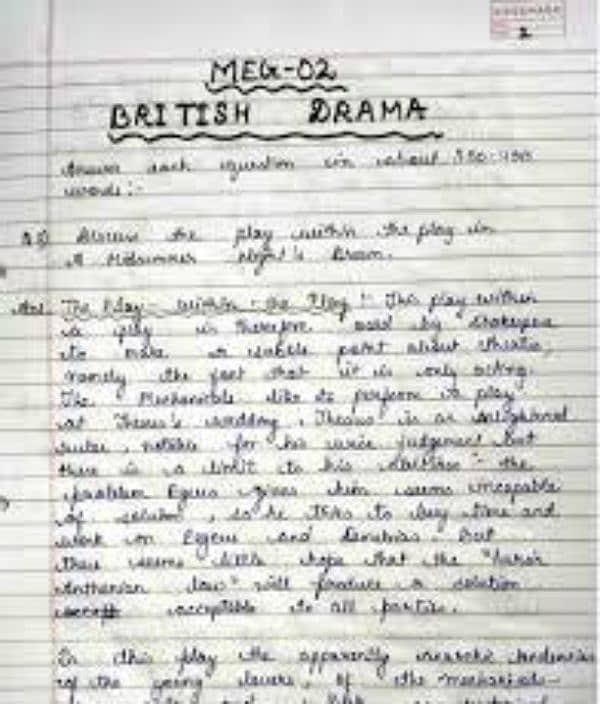 2
MEG-02
BRITISH DRAMA
Answer each question in about 350-450
words :-
Discuss the play within the play in
A Midsummer Night's Dream.
Ans. The Play - within - the Play :- This play within
a play is therefore used by Shakespeare
to make a subtle point about theatre,
namely the fact that it is only acting.
The Mechanicals like to perform a play
at Theseus's wedding. Theseus is an enlightened
ruler, notable for his wise judgement but
there is a limit to his - the
problem Egeus gives him seems incapable
of solution, so he tries to buy time and
work on Egeus and Demetrius. But
there seems little hope that the "harsh
Anthenian law" will produce a solution
acceptable to all parties.
In this play the apparently anarchic tendencies
of the young lovers, of the mechanicals-